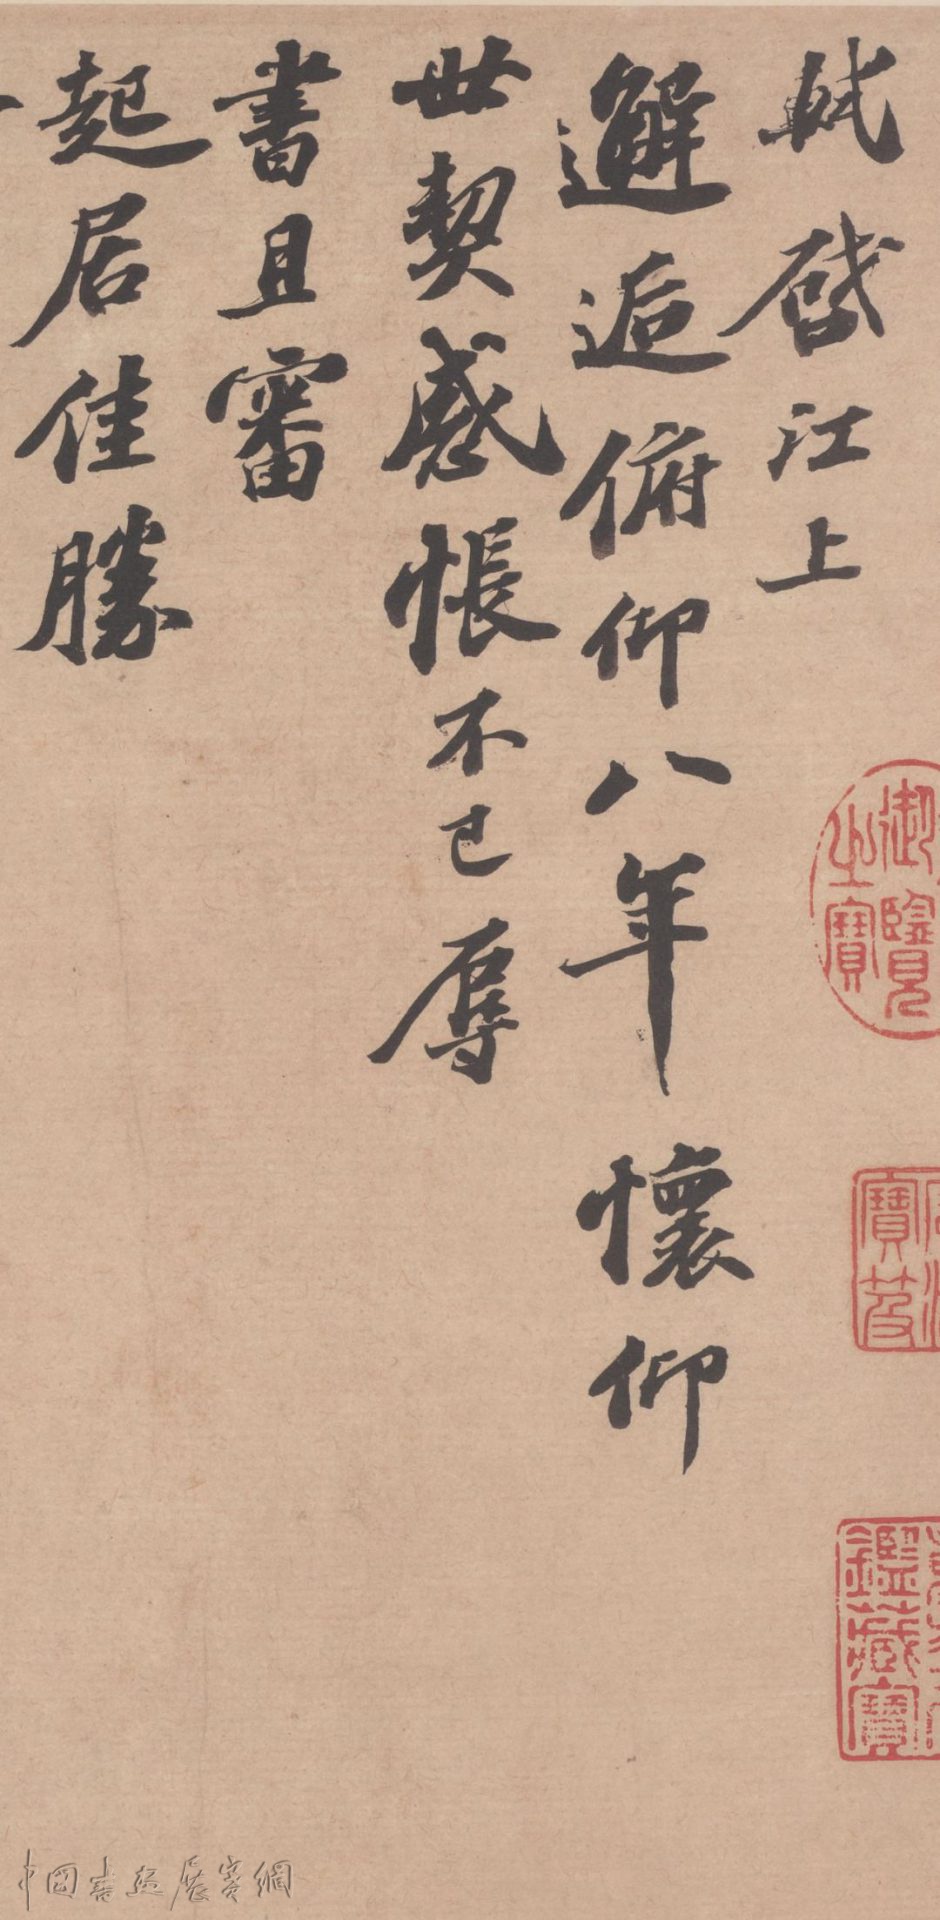 軾啓江上
邂逅俯仰八年懷仰
世契感悵不已辱
書且審
起居佳勝
御覽之寶
寶笈
鑑藏寶
中国书法展赛網